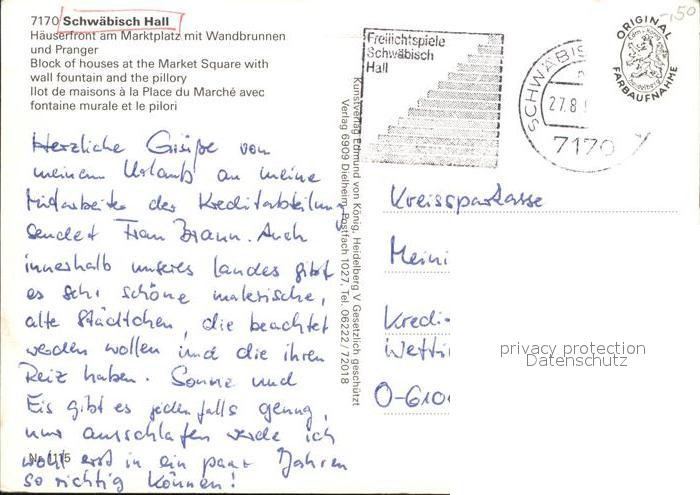 7170 Schwäbisch Hall
Häuserfront am Marktplatz mit Wandbrunnen
und Pranger
Block of houses at the Market Square with
wall fountain and the pillory
Ilot de maisons à la Place du Marché avec
fontaine murale et le pilori
Herzliche Grüße von
meinem Urlaub an meine
Mitarbeiter der Kreditabteilung
sendet Frau Braun. Auch
innerhalb unseres Landes gibt
es sehr schöne malerische,
alte Städtchen, die beachtet
werden wollen und die ihren
Reiz haben. Sonne und
Eis gibt es jedenfalls genug,
nur ausschlafen werde ich
wohl erst in ein paar Jahren
so richtig können!
Nr. 1115
Kunstverlag Edmund von König, Heidelberg V Gesetzlich geschützt
Verlag 6909 Dielheim, Postfach 1027, Tel. 06222/72018
Freilichtspiele
Schwäbisch
Hall
SCHWÄBIS
27.8
7170
ORIGINAL
FARBAUFNAHME
-,50
Kreissparkasse
Meini
Kredi-
Wetti
O-610
privacy protection
Datenschutz